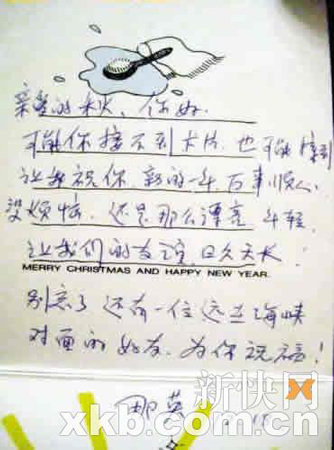 亲爱的秋秋、你好.
可能你接不到卡片.也可能接到
让我祝你 新的一年.万事顺心.
没烦恼.还是那么漂亮 年轻.
让我们的友谊.日久天长.
MERRY CHRISTMAS AND HAPPY NEW YEAR.
别忘了 还有一位远在海峡
对面的好友.为你祝福!
那英
新快网
xkb.com.cn